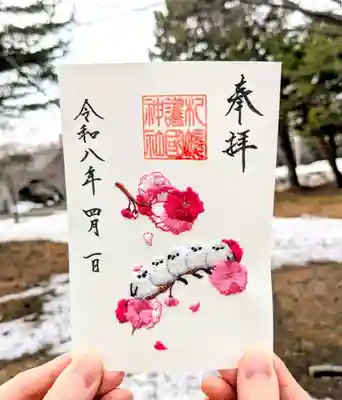 奉拝
札幌
護国
神社
令和八年 四月 一日